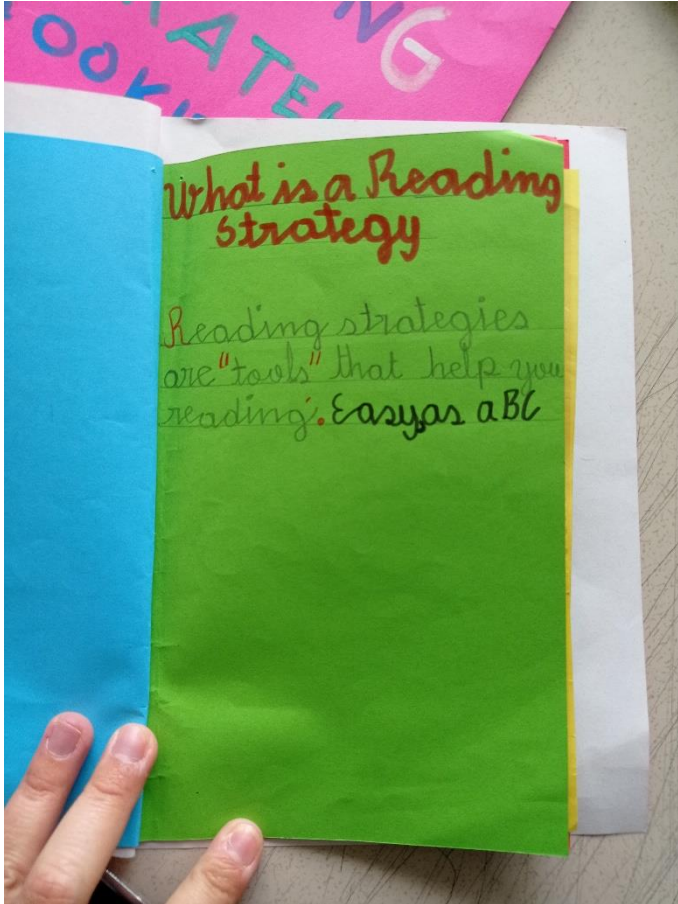 NG
ATE
OOK
What is a Reading
strategy
Reading strategies
are "tools" that help you
reading. Easy as aBC